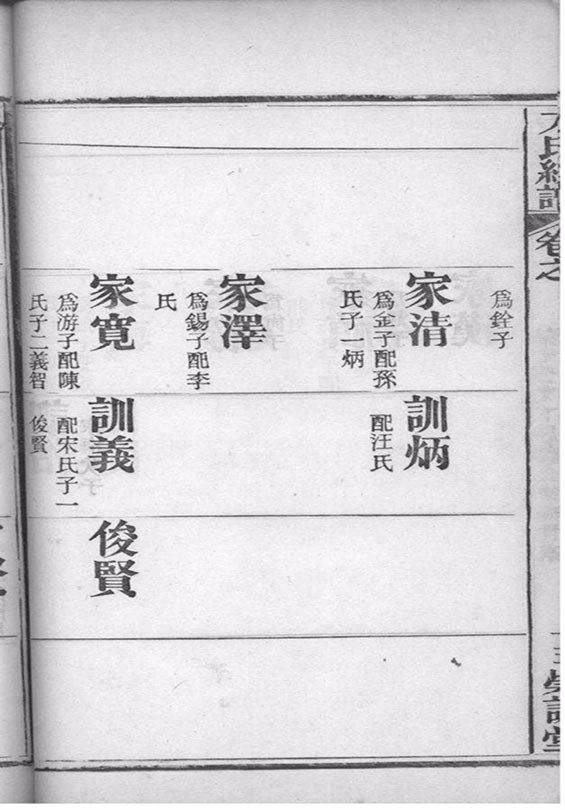 氏續譜
卷之
為銓子
家清
為金子配孫
氏子一炳
家澤
為錫子配李
氏
家寬
為游子配陳
氏子二義智
訓炳
配汪氏
訓義
配宋氏子一
俊賢
俊賢